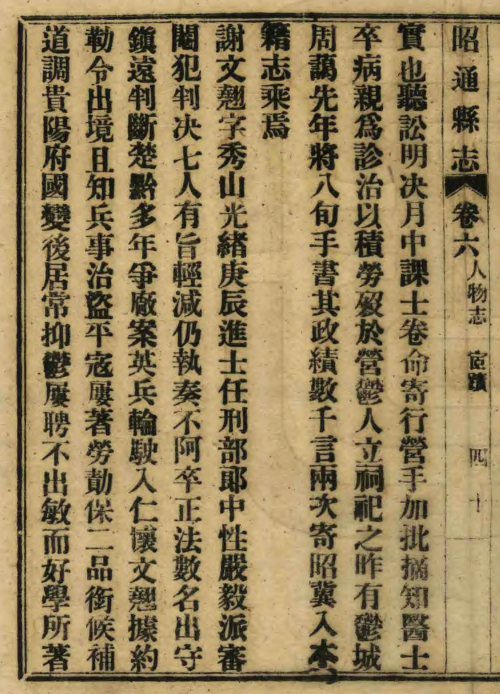 昭通縣志 卷六 人物志 宦蹟 四十
實也聽訟明决月中課士卷命寄行營手加批摘知醫士
卒病親爲診治以積勞歿於營鬱人立祠祀之昨有鬱城
周藹先年將八旬手書其政績數千言兩次寄昭冀入本
籍志乘焉
謝文翹字秀山光緖庚辰進士任刑部郎中性嚴毅派審
閹犯判决七人有旨輕減仍執奏不阿卒正法數名出守
鎭遠判斷楚黔多年爭廠案英兵輪駛入仁懷文翹據約
勒令出境且知兵事治盜平寇屢著勞勣保二品銜候補
道調貴陽府國變後居常抑鬱屢聘不出敏而好學所著